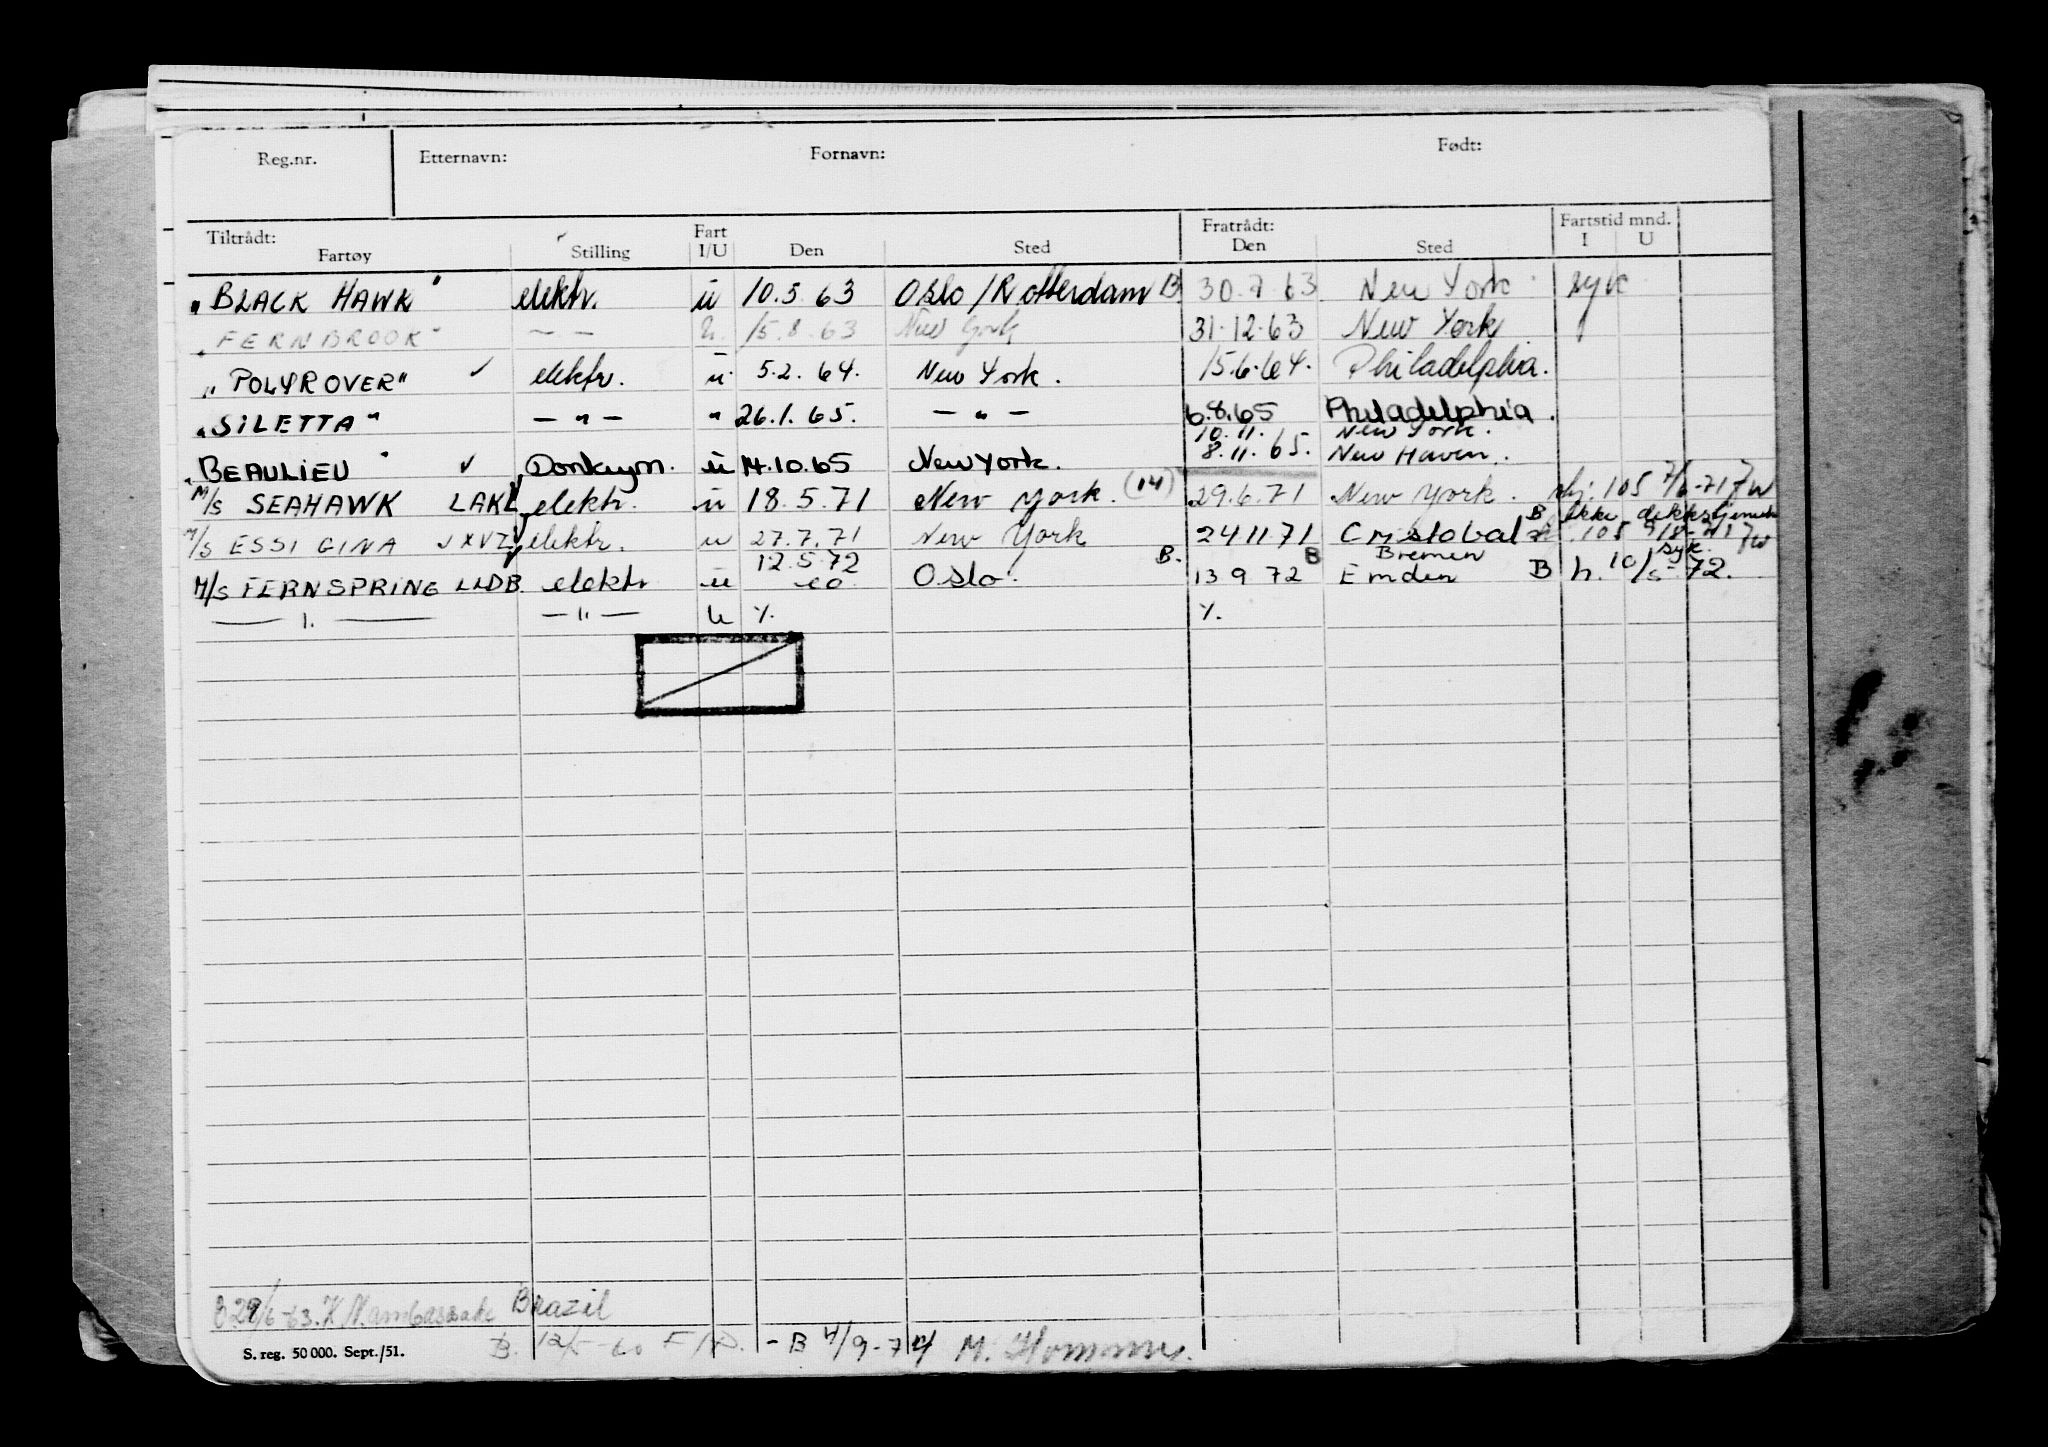 Reg.nr. Etternavn: Fornavn: Født:
Tiltrådt: Fart Fratrådt: Fartstid mnd.
Fartøy Stilling I/U Den Sted Den Sted I U
"BLACK HAWK" elektr. u 10.5.63 Oslo/Rotterdam B 30.7.63 New York syk
"FERNBROOK" — — u. 15.8.63 New York 31.12.63 New York
"POLYROVER" ✓ elektr. u 5.2.64. New York. 15.6.64. Philadelphia.
"SILETTA" — " — " 26.1.65. — " — 6.8.65 Philadelphia.
10.11. New York.
"BEAULIEU" ✓ Donkeym. u 14.10.65 New York. 8.11.65. New Haven.
M/S SEAHAWK LAKL elektr. u 18.5.71 New York. (14) 29.6.71 New York. 105 7/6-71
B ikke
M/S ESSI GINA JXVZ elektr. u 27.7.71 New York 24.11.71 Cristobal 105 9/8-71
12.5.72 B. B Bremen syk.
M/S FERNSPRING LLDB elektr u Oslo. 13 9 72 Emden B h. 10/5-72.
— " — — " — u %. %.
29/6-63. Brazil
B. 12/5-60 - B 4/9-74 M.
S. reg. 50 000. Sept./51.